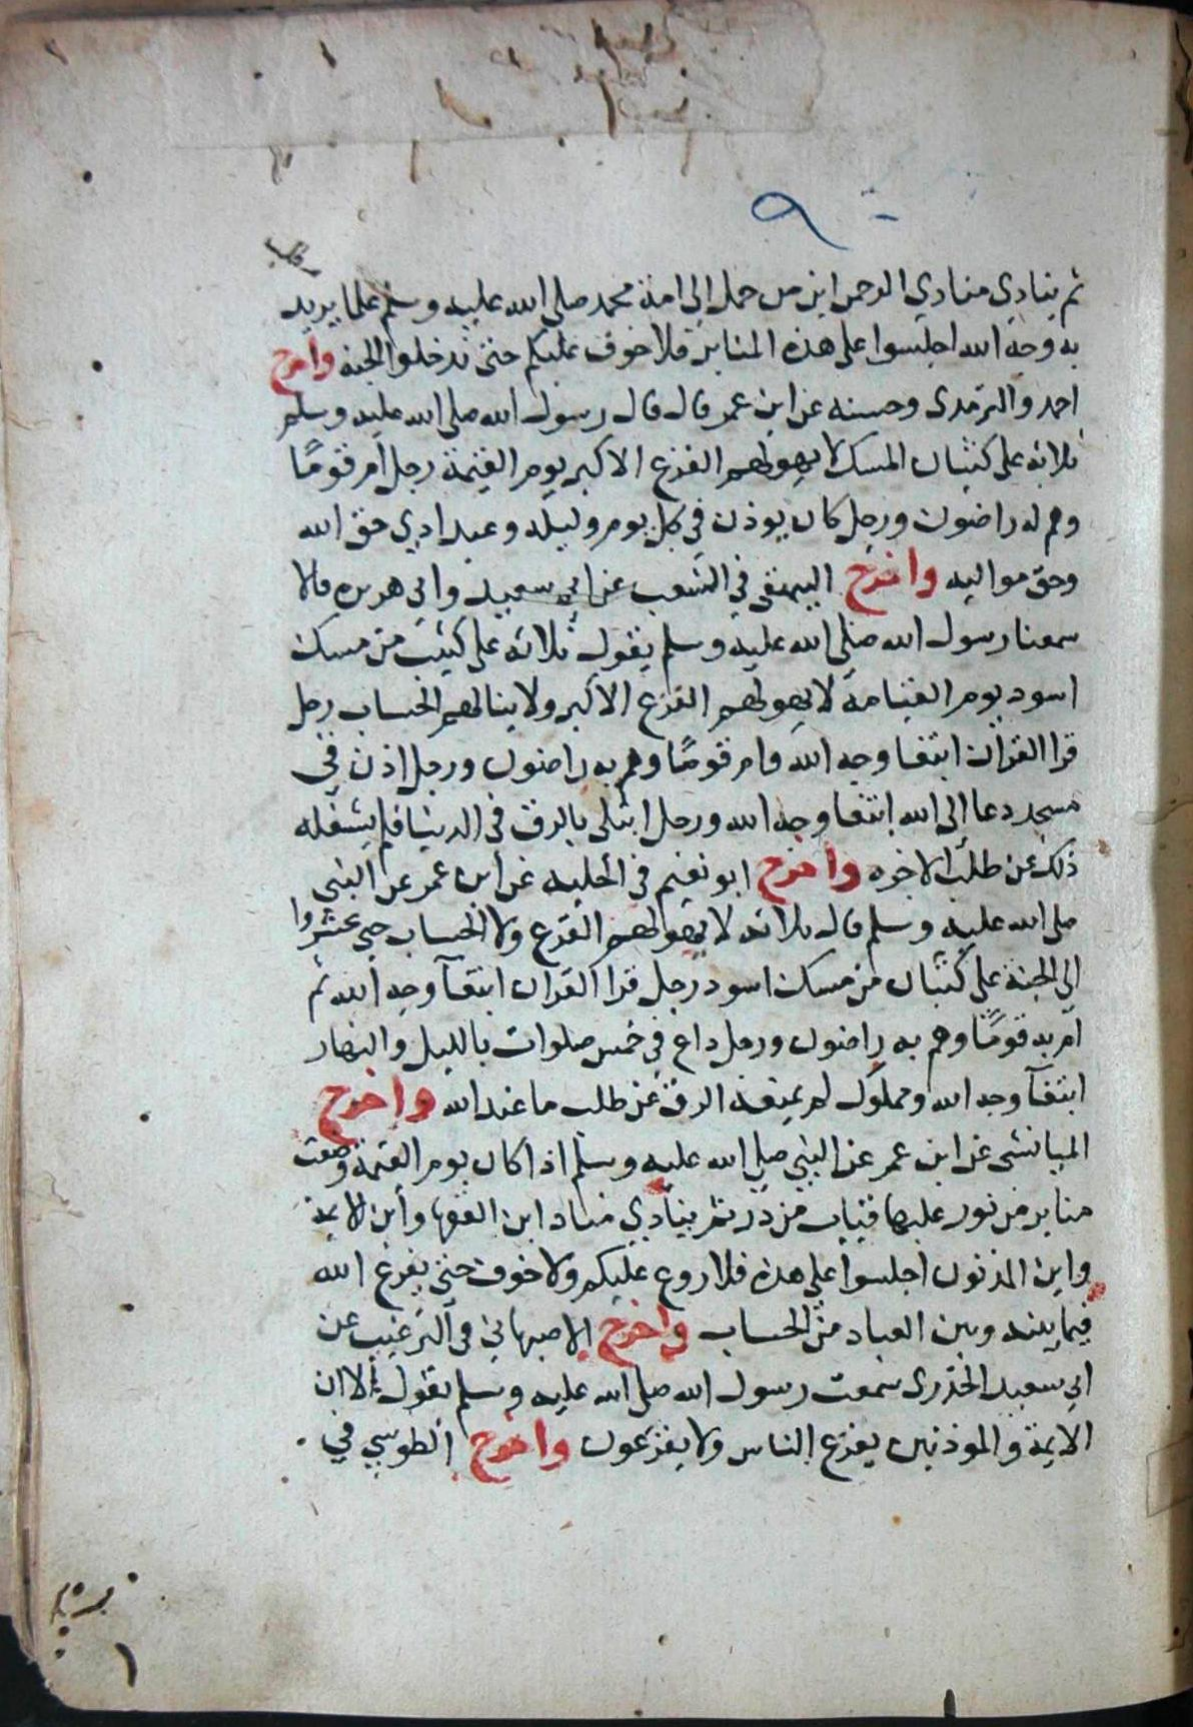 ٩
ثم ينادي منادي الرحمن اين من حمل الى امة محمد صلى الله عليه وسلم علما يريد
به وجه الله اجلسوا على هذه المنابر فلا خوف عليكم حتى تدخلوا الجنة واخرج
احمد والترمدى وحسنه عن ابن عمر قال قال رسول الله صلى الله عليه وسلم
ثلاثة على كثبان المسك لا يهولهم الفزع الاكبر يوم القيمة رجل أم قومًا
وهم له راضون ورجل كان يوذن في كل يوم وليلة وعبد ادي حق الله
وحق مواليه واخرج البيهقي في الشعب عن ابي سعيد وابي هريره قالا
سمعنا رسول الله صلى الله عليه وسلم يقول ثلاثه على كثيب من مسك
اسود يوم القيامة لا يهولهم الفزع الاكبر ولا ينالهم الحساب رجل
قرا القران ابتغا وجه الله وام قومًا وهم به راضون ورجل اذن في
مسجد دعا الى الله ابتغا وجه الله ورجل ابتلى بالرق في الدنيا فلم يشغله
ذلك عن طلب الاخره واخرج ابو نعيم في الحليه عن ابن عمر عن النبي
صلى الله عليه وسلم قال ثلاثه لا يهولهم الفزع ولا الحساب حتى يحشروا
الى الجنة على كثبان من مسك اسود رجل قرا القران ابتغآ وجه الله ثم
أم به قومًا وهم به راضون ورجل داع في خمس صلوات بالليل والنهار
ابتغآ وجه الله ومملوك لم يمنعه الرق عن طلب ما عند الله واخرج
الميانشى عن ابن عمر عن النبي صلى الله عليه وسلم اذا كان يوم القيمة وضعت
منابر من نور عليها قباب من در ثم ينادي مناد اين الفقها وأين الايمة
واين المذنون اجلسوا على هذه فلا روع عليكم ولا خوف حتى يفرغ الله
فيما بينه وبين العباد من الحساب واخرج الاصبهاني في الترغيب عن
ابي سعيد الخدرى سمعت رسول الله صلى الله عليه وسلم يقول الا ان
الايمة والموذنين يفزع الناس ولا يفزعون واخرج الطوسي في